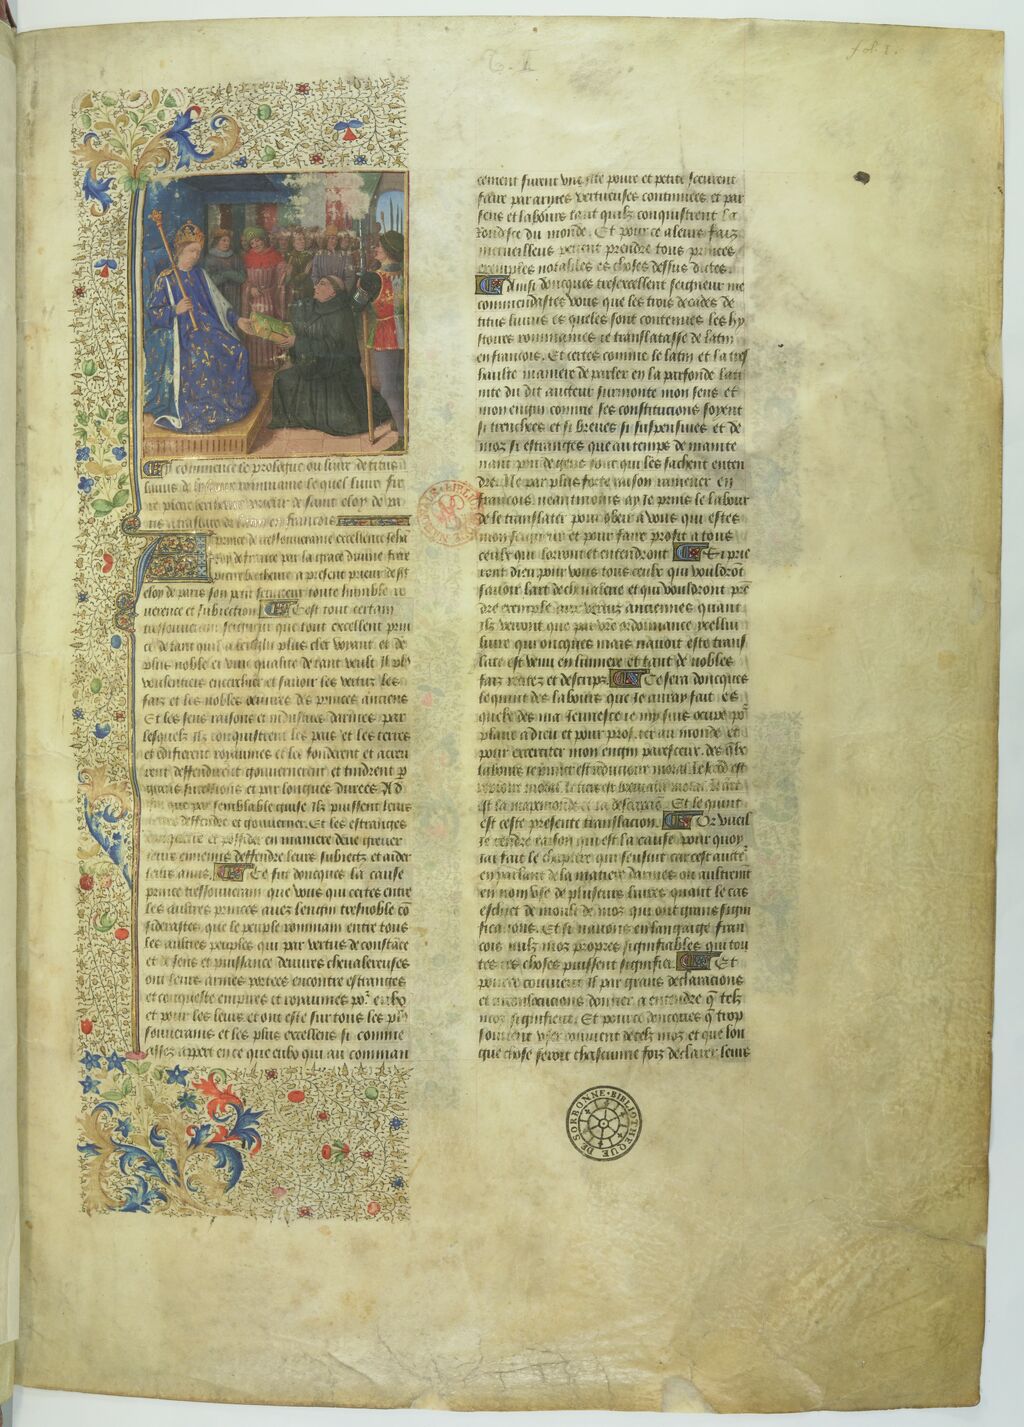 fol. 1.
Cy commence le prologue ou livre de titus
livius de lystoire rommaine le quel livre fre
re pierre berthevre prieur de saint eloy de pa
ris a translate de latin en francois
A prince de tressouveraine excellence Jeha
roy de france par la grace divine frere
pierre bertheure a present prieur de st
eloy de paris son petit serviteur toute humble re
verence et subiection C'est tout certain
tressouverain seigneur que tout excellent prin
ce de tant quil a lengin plus cler voyant et de
plus noble et vive qualite de tant veult il pl9
voulentiers encerchier et savoir les vertuz les
faiz et les nobles oeuvres des princes anciens
Et les sens raisons et industries darmes par
lesquelz ilz conquistrent les pais et les terres
et edifierent royaumes et les fonderent et accru
rent deffendirent gouvernerent et tindrent p
grans successions et par longues durees A
que par semblable guise ilz puissent leurs
deffendre et gouverner. Et les estranges
conquerir et posseder en maniere deue grever
leurs ennemis deffendre leurs subiectz et aider
leurs amis. Ce fut doncques la cause
prince tressouverain que vous qui certes entre
les aultres princes avez lengin tresnoble co
siderastes que le peuple rommain entre tous
les aultres peuples qui par vertus de constace
et de sens et puissance de euvres chevalereuses
ont leurs armes portees encontre estranges
et conqueste empires et royaumes po2
et pour les leurs et ont este sur tous les pl9
souverains et les plus excellens si comme
assez appert en ce que eulx qui au comman
cement furent une gent povre et petite sceurent
faire par armes vertueuses continuees et par
sens et labours tant quilz conquistrent la
rondesce du monde. Et pour ce a leurs faiz
merveilleux peuent prendre tous princes
exemples notables es choses dessus dictes.
Ainsi doncques tresexcellent seigneur me
commendastes vous que les trois decades de
titus livius es queles sont contenues les hy
stoires rommaines ie translatasse de latin
en francois. Et certes comme le latin et la tres
haulte maniere de parler en la parfonde lati
nite du dit aucteur surmonte mon sens et
mon engin comme ses constitucions soyent
si trenchees et si breves si suspensives et de
moz si estranges que au temps de mainte
nant poy de gens sont qui les sachent enten
dre. Ne par plus forte raison ramener en
francois neantmoins ay ie prins le labour
de le translater pour obeir a vous qui estes
mon seigneur et pour faire profit a tous
ceulx qui lorront et entendront Si prie
ront dieu pour vous tous ceulx qui vouldrot
savoir lart de chevalerie et qui vouldront pre
dre exemple aux vertuz anciennes quant
ilz verront que par vre ordonnance ycellui
livre qui oncques mais navoit este trans
late est venu en lumiere et tant de nobles
faiz recitez et descrips. Ce sera doncques
le quint des labours que Je auray fait es
quelx des ma Jeunesce ie my suis ocupe po2
plaire a dieu et pour profiter au monde et
pour excerciter mon engin paresceux. des qlx
labours le prmier est reductoire moral. le second est
repertoire moral. le tiers est breviaire moral. le quart
est la mapemonde et la descripcion. Et le quint
est ceste presente translacion. Or vueil
ie rendre raison qui est la cause pour quoy
iai fait le chapitre qui sensuit car cest aucte2
en parlant de la matiere darmes ou aultremt
en nom use de plusieurs livres quant le cas
eschiet de moult de moz qui ont grans signi
ficacions. Et si navons en langaige fran
cois nulz moz propres signifiables qui tou
tes ces choses puissent signifier. Et
pour ce convient il par grans declaracions
et circonlocucions donner a entendre q telz
moz signifient. Et pource doncques q trop
souvent user convient de telz moz et que lon
gue chose seroit chascune foiz declarer leurs
DE SORBONNE · BIBLIOTHEQUE